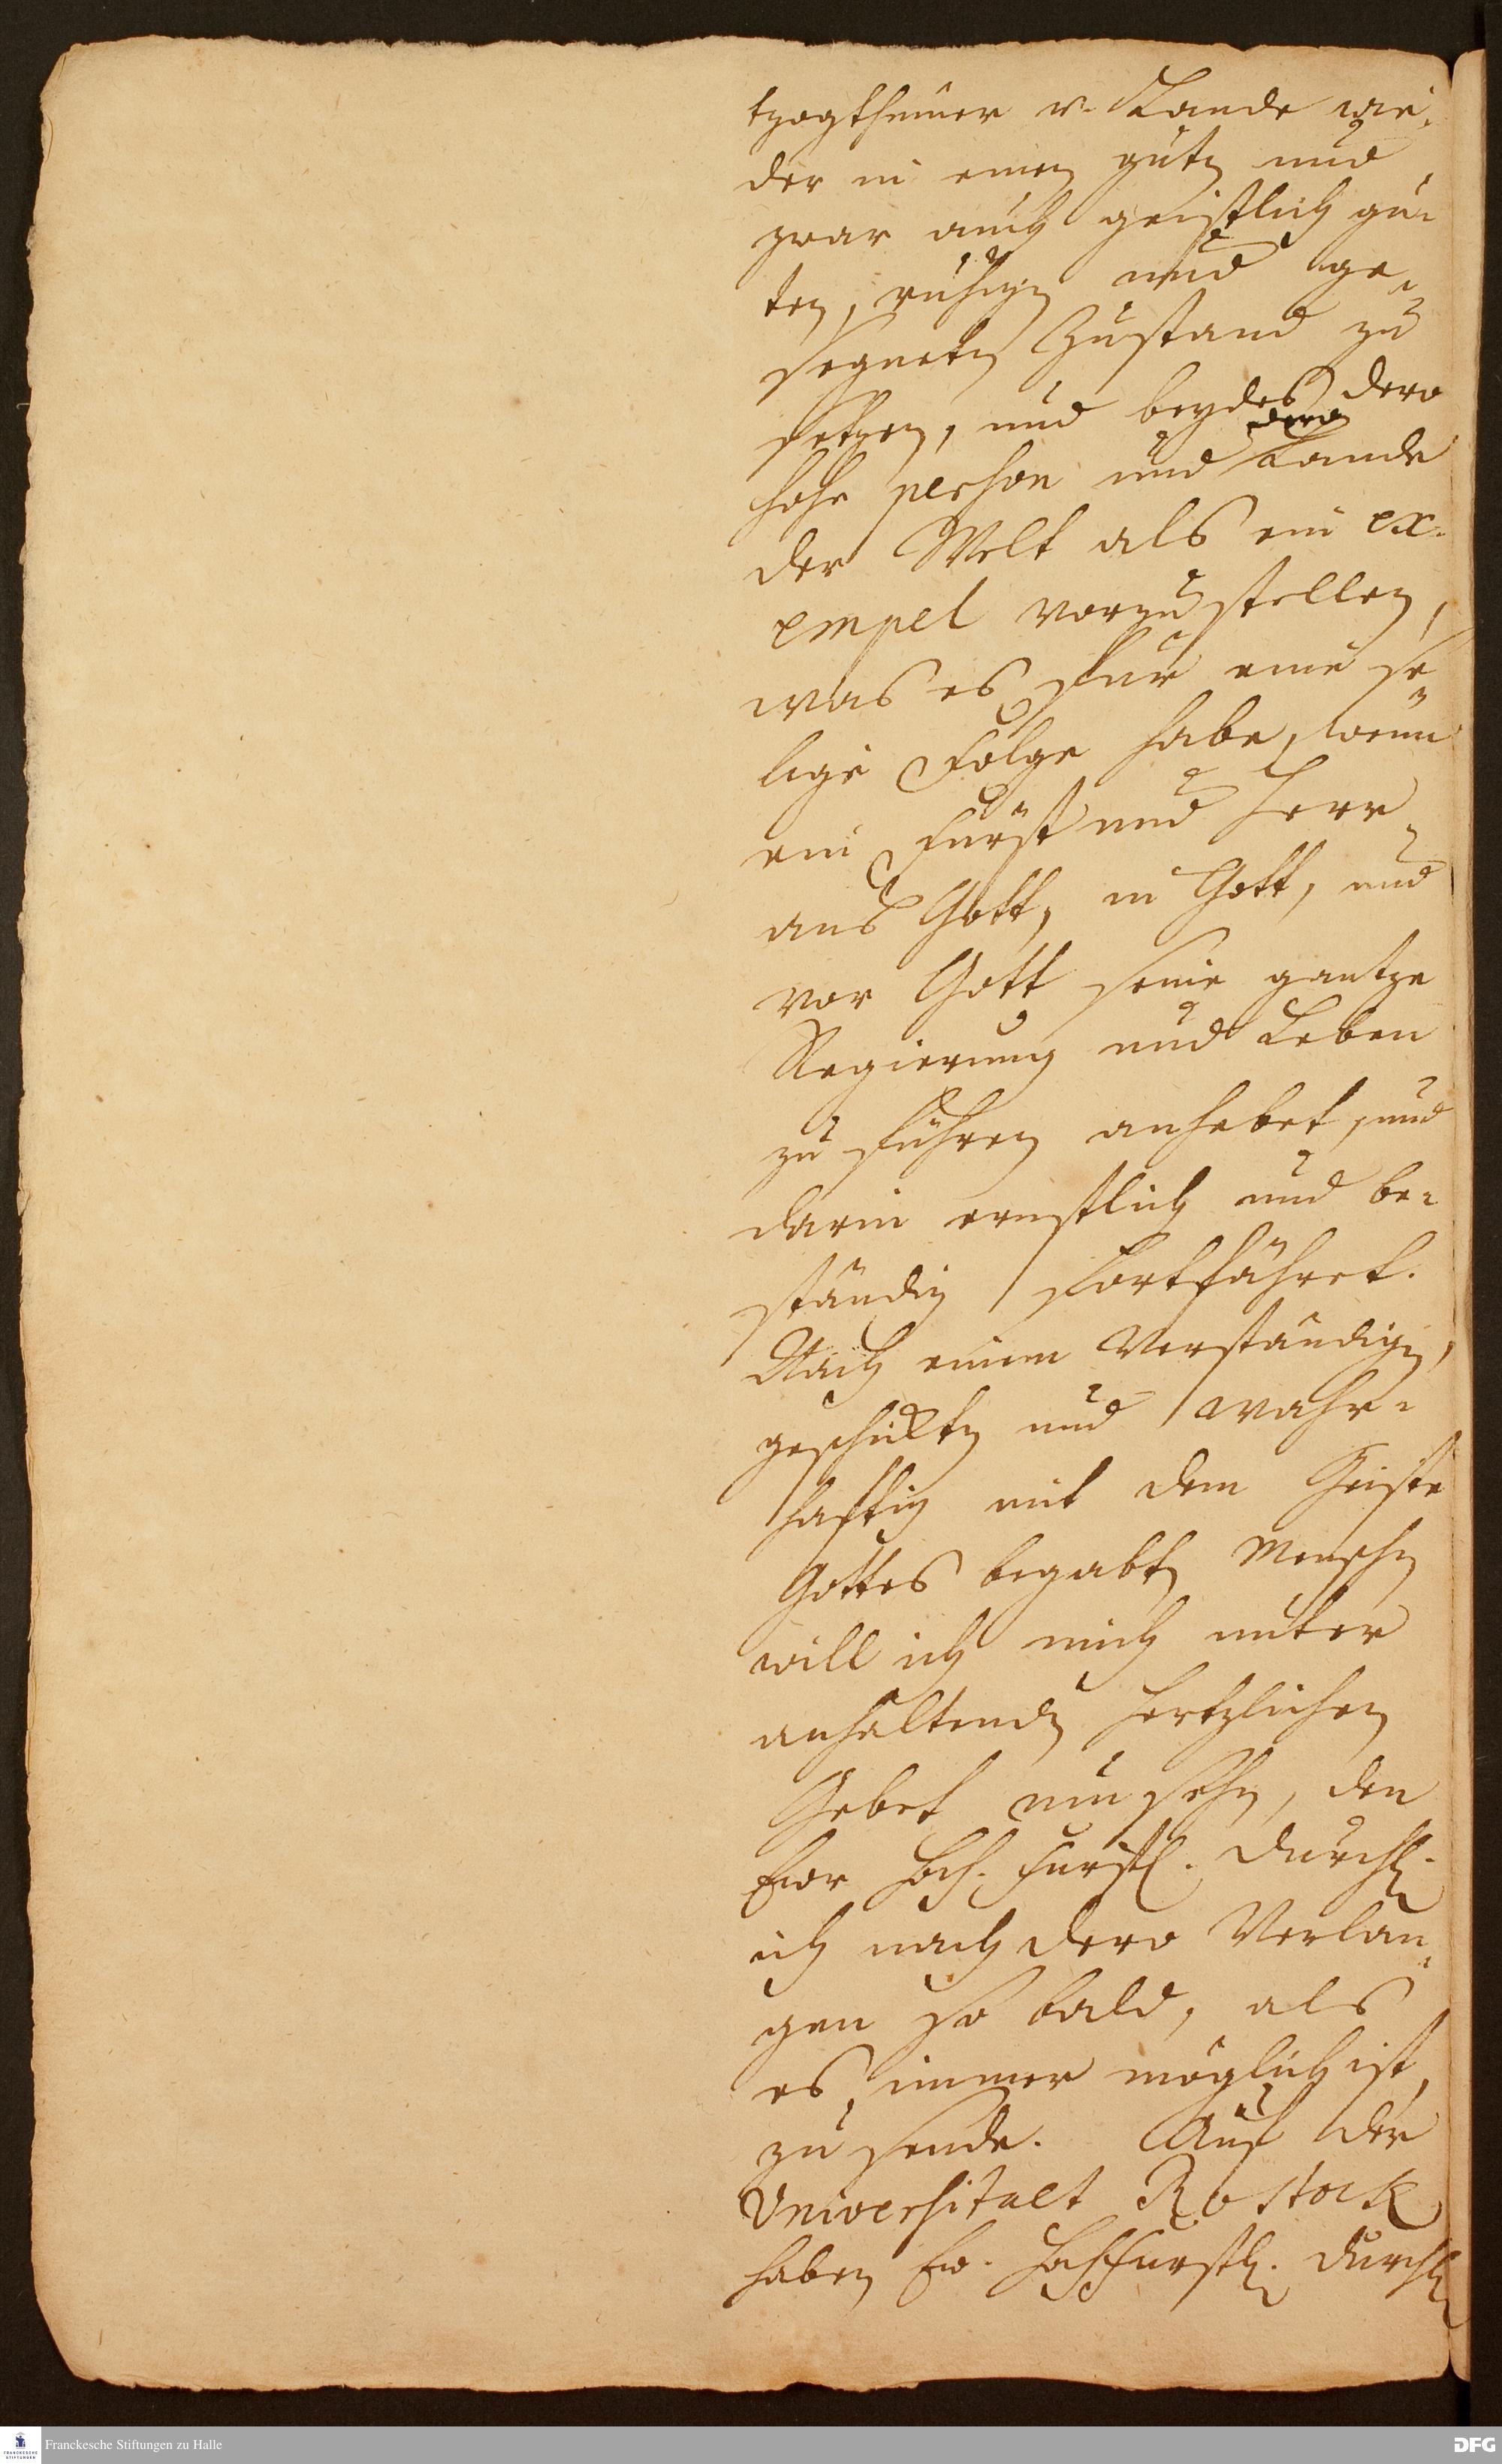 tzogthumer u. Lande wie-
der in einen guten und
zwar auch geistlich gu-
ten, ruhigen und ge-
segneten Zustand zu
setzen, und beydes dero
dero
hohe person und Lande
der Welt als ein ex-
empel vorzustellen,
was es fur eine se
lige Folge habe, wenn
ein Fürst und Herr
aus Gott, in Gott, und
vor Gott seine gantze
Regierung und Leben
zu führen anhebet, und
darin ernstlich und be-
ständig fortfähret.
Nach einem Verständigen,
geschickten und wahr-
hafftig mit dem Geiste
Gottes begabten Menschen
will ich mich unter
anhaltenden hertzlichen
Gebet umsehen, den
Ewr Hoch. Furstl. Durchl.
ich nach dero Verlan-
gen so bald, als
es immer möglich ist,
zu sende. Auf der
Universitaet Rostock
haben Ew. HochFurstl. Durchl
Franckesche Stiftungen zu Halle
DFG